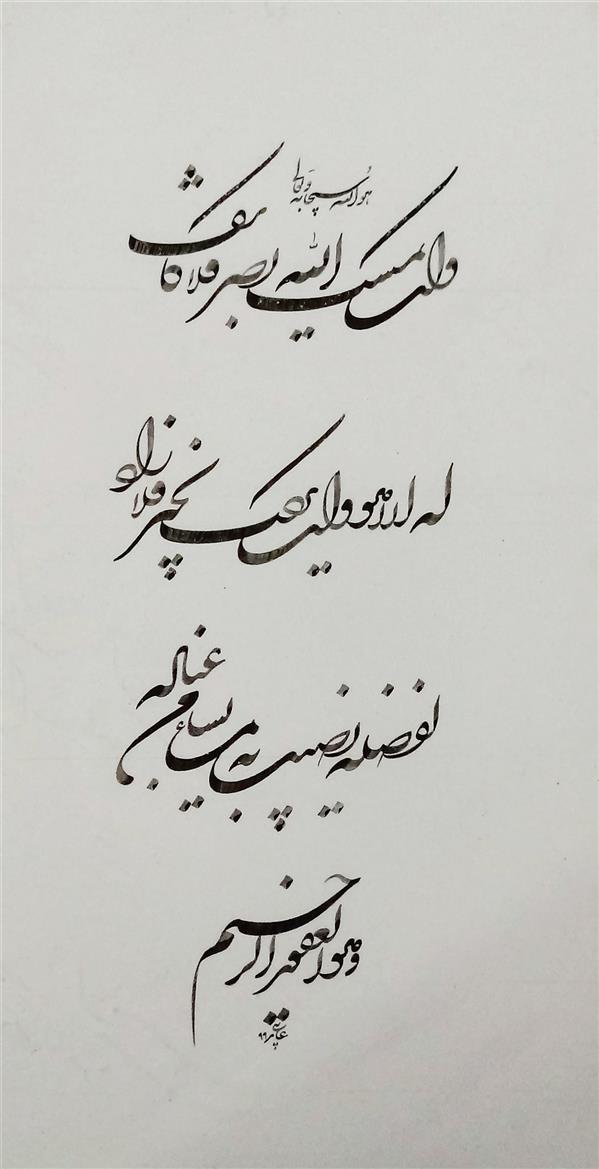 هو الله سبحانه و تعالی
وان یمسسک الله بضر فلا کاشف
له الا هو وان یردک بخیر فلا راد
لفضله یصیب به من یشاء من عباده
وهو الغفور الرحیم